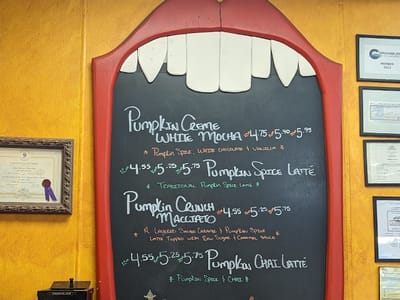 Pumpkin Creme
White Mocha 4.75 5.40 5.95
Pumpkin Spice, White Chocolate & Vanilla
4.55 5.25 5.75 Pumpkin Spice Latté
Traditional Pumpkin Spice Latte
Pumpkin Crunch
Macchiato 4.55 5.25 5.75
A Layered Salted Caramel & Pumpkin Spice
Latte Topped with Raw Sugar & Caramel Sauce
4.55 5.25 5.75 Pumpkin Chai Latté
Pumpkin Spice & Chai